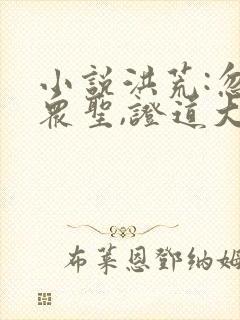 小說洪荒:忽
眾聖,證道大
布萊恩鄧納姆